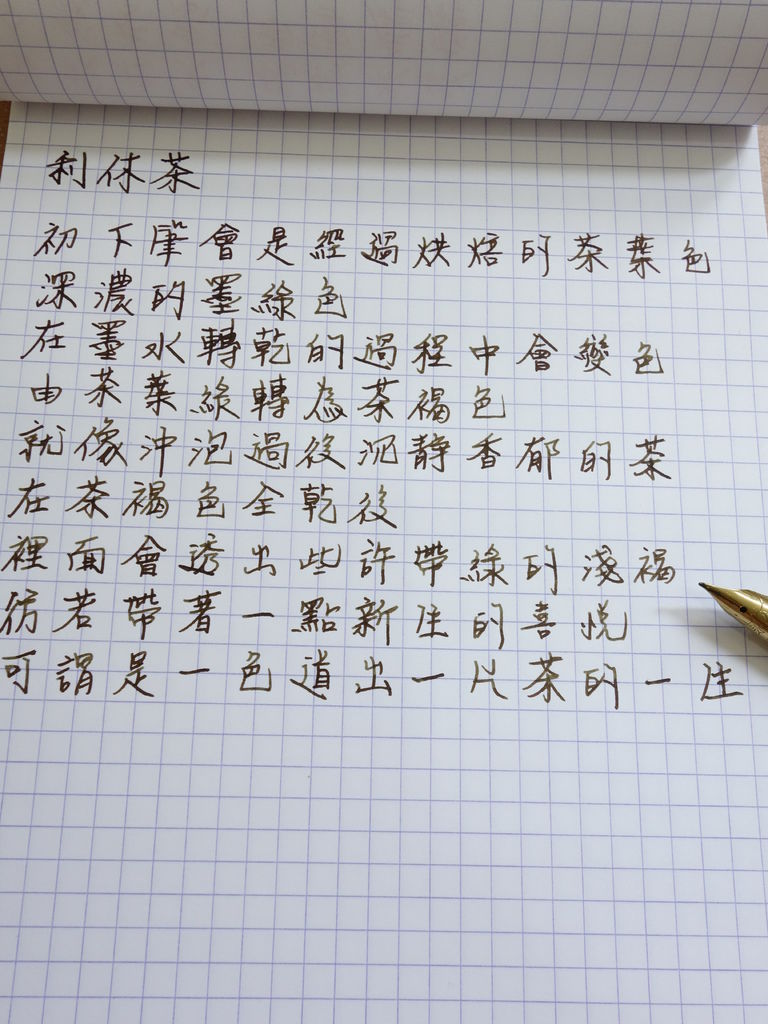 利休茶
初下筆會是經過烘焙的茶葉色
深濃的墨綠色
在墨水轉乾的過程中會變色
由茶葉綠轉為茶褐色
就像沖泡過後沉靜香郁的茶
在茶褐色全乾後
裡面會透出些許帶綠的淺褐
彷若帶著一點新生的喜悅
可謂是一色道出一片茶的一生